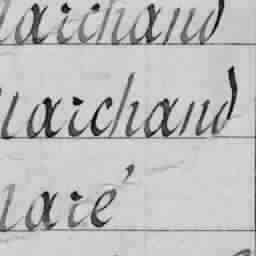 Marchand
Marchand
Maré